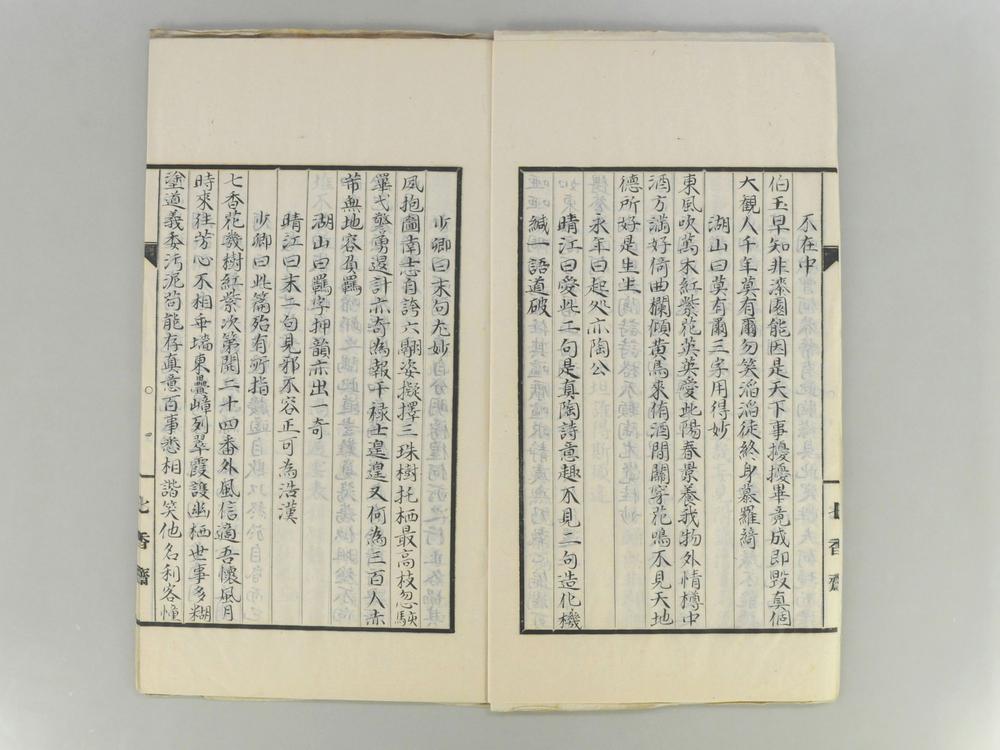 不在中
伯玉早知非漆園能因是天下事擾擾畢竟成即毀真個
大観人千年莫有爾勿笑滔滔徒終身慕羅綺
湖山曰莫有爾三字用得妙
東風吹萬木紅紫花英英愛此陽春景養我物外情樽中
酒方満好倚曲欄傾黄鳥来侑酒間關穿花鳴不見天地
德所好是生生
永年曰起処亦陶公
晴江曰愛此二句是真陶詩意趣不見二句造化機
緘一語道破
少卿曰末句尤妙
風抱圖南志自誇六翮姿擬擇三珠樹托栖最高枝忽駭
畢弋警勇退計亦奇為報干禄士遑遑又何為三百人赤
芾無地容負羈
湖山曰羈字押韻亦出一奇
晴江曰末二句見邪不容正可為浩漢
少卿曰此篇殆有所指
七香花發樹紅紫次第開二十四番外風信適吾懐風月
時来往芳心不相乖墻東疊嶂列翠霞護幽栖世事多糊
塗道義委汚泥苟能存真意百事悉相諧笑他名利客憧
七香齋
七香齋